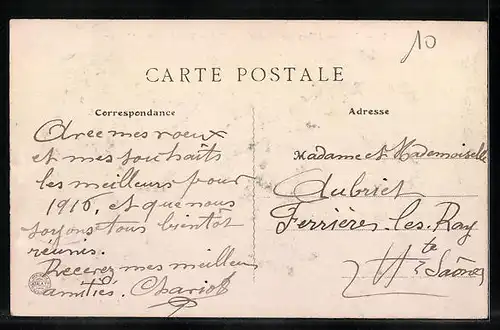 10
CARTE POSTALE
Correspondance
Avec mes voeux
et mes souhaits
les meilleurs pour
1916, et que nous
soyons tous bientot
réunis.
Recevez mes meilleurs
amitiés. Chariot
Adresse
Madame et Mademoiselle
Aubriet
Ferrières-les-Ray
Hte Saône